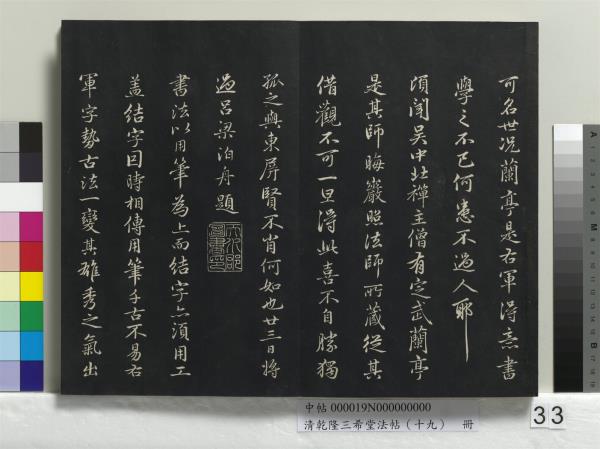 可名世况蘭亭是右軍得意書
學之不已何患不過人耶
頃聞吳中北禪主僧有定武蘭亭
是其師晦巖照法師所藏從其
借觀不可一旦得此喜不自勝獨
孤之與東屏賢不肖何如也廿三日將
過呂梁泊舟題
書法以用筆為上而結字亦須用工
盖結字因時相傳用筆千古不易右
軍字勢古法一變其雄秀之氣出
中帖 000019N000000000
清乾隆三希堂法帖(十九) 冊
33